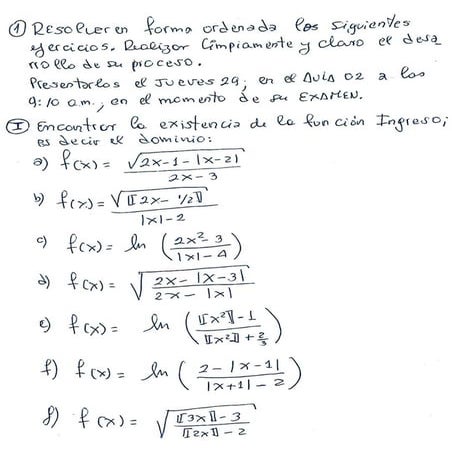 ① Resolver en forma ordenada los siguientes
ejercicios. Realizar limpiamente y claro el desa
rrollo de su proceso.
Presentarlos el Jueves 29, en el AULA 02 a las
9:10 a.m., en el momento de su EXAMEN.
Ⓘ Encontrar la existencia de la función Ingreso;
es decir el dominio:
a) f(x) = √(2x-1-|x-2|) / (2x-3)
b) f(x) = √(⟦2x-1/2⟧) / (|x|-2)
c) f(x) = ln ((2x²-3)/(|x|-4))
d) f(x) = √((2x-|x-3|)/(2x-|x|))
e) f(x) = ln ((⟦x²⟧-1)/(⟦x²⟧+2/3))
f) f(x) = ln ((2-|x-1|)/(|x+1|-2))
g) f(x) = √((⟦3x⟧-3)/(⟦2x⟧-2))